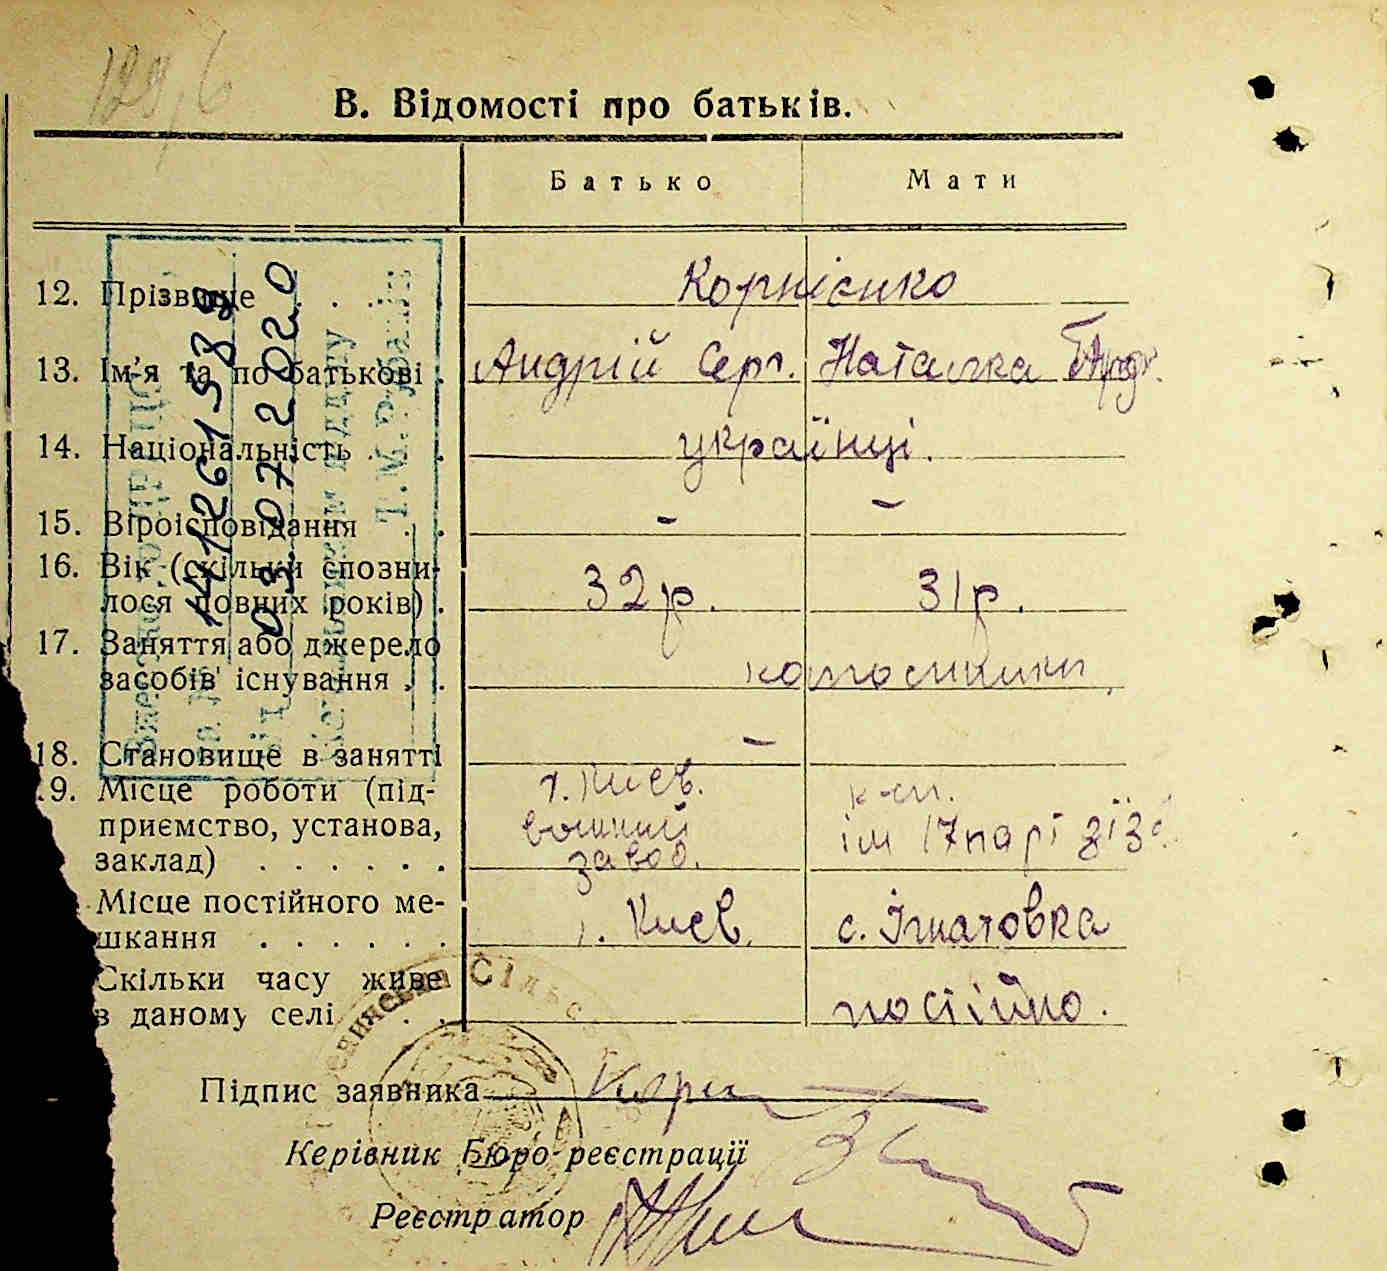 129,6
В. Відомості про батьків.
Батько Мати
12. Прізвище . . . . Корнієнко
13. Ім'я та по батькові . Андрій Серг. Наталка
14. Національність . . . українці.
15. Віроісповідання . . - -
16. Вік (скільки сповни-
лося повних років) . 32 р. 31 р.
17. Заняття або джерело
засобів існування . . колгоспники
18. Становище в занятті -
.9. Місце роботи (під- г. Киев. к-сп.
приємство, установа, ім 17 парт зізд
заклад) . . . . . . завод.
Місце постійного ме-
шкання . . . . . . г. Киев. с. Ігнатовка
Скільки часу живе
в даному селі . . . постійно.
Підпис заявника Корн
Керівник Бюро-реєстрації
Реєстратор
1412615 88
03 07 2020